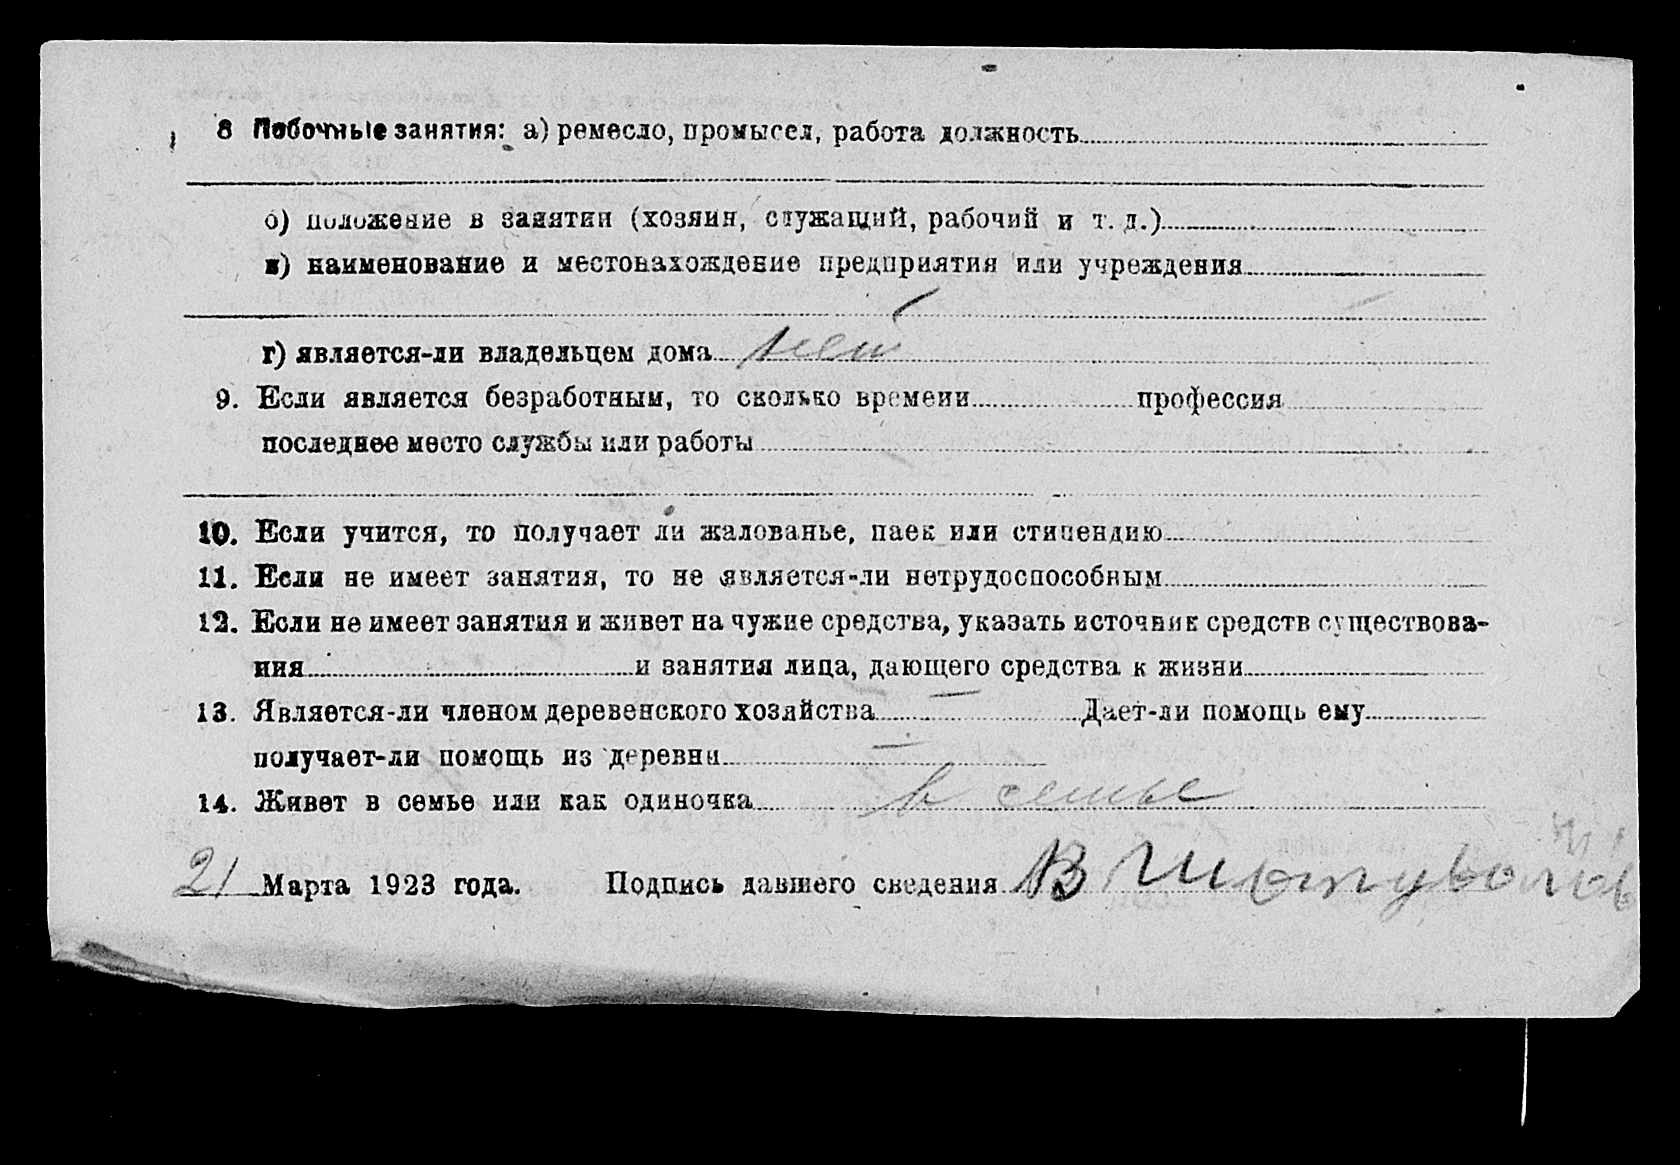 8 Побочные занятия: а) ремесло, промысел, работа должность
б) положение в занятии (хозяин, служащий, рабочий и т. д.)
в) наименование и местонахождение предприятия или учреждения
г) является-ли владельцем дома нет
9. Если является безработным, то сколько времени профессия
последнее место службы или работы
10. Если учится, то получает ли жалованье, паек или стипендию
11. Если не имеет занятия, то не является-ли нетрудоспособным
12. Если не имеет занятия и живет на чужие средства, указать источник средств существова-
ния и занятия лица, дающего средства к жизни
13. Является-ли членом деревенского хозяйства — Дает-ли помощь ему
получает-ли помощь из деревни —
14. Живет в семье или как одиночка в семье
21 Марта 1923 года. Подпись давшего сведения В